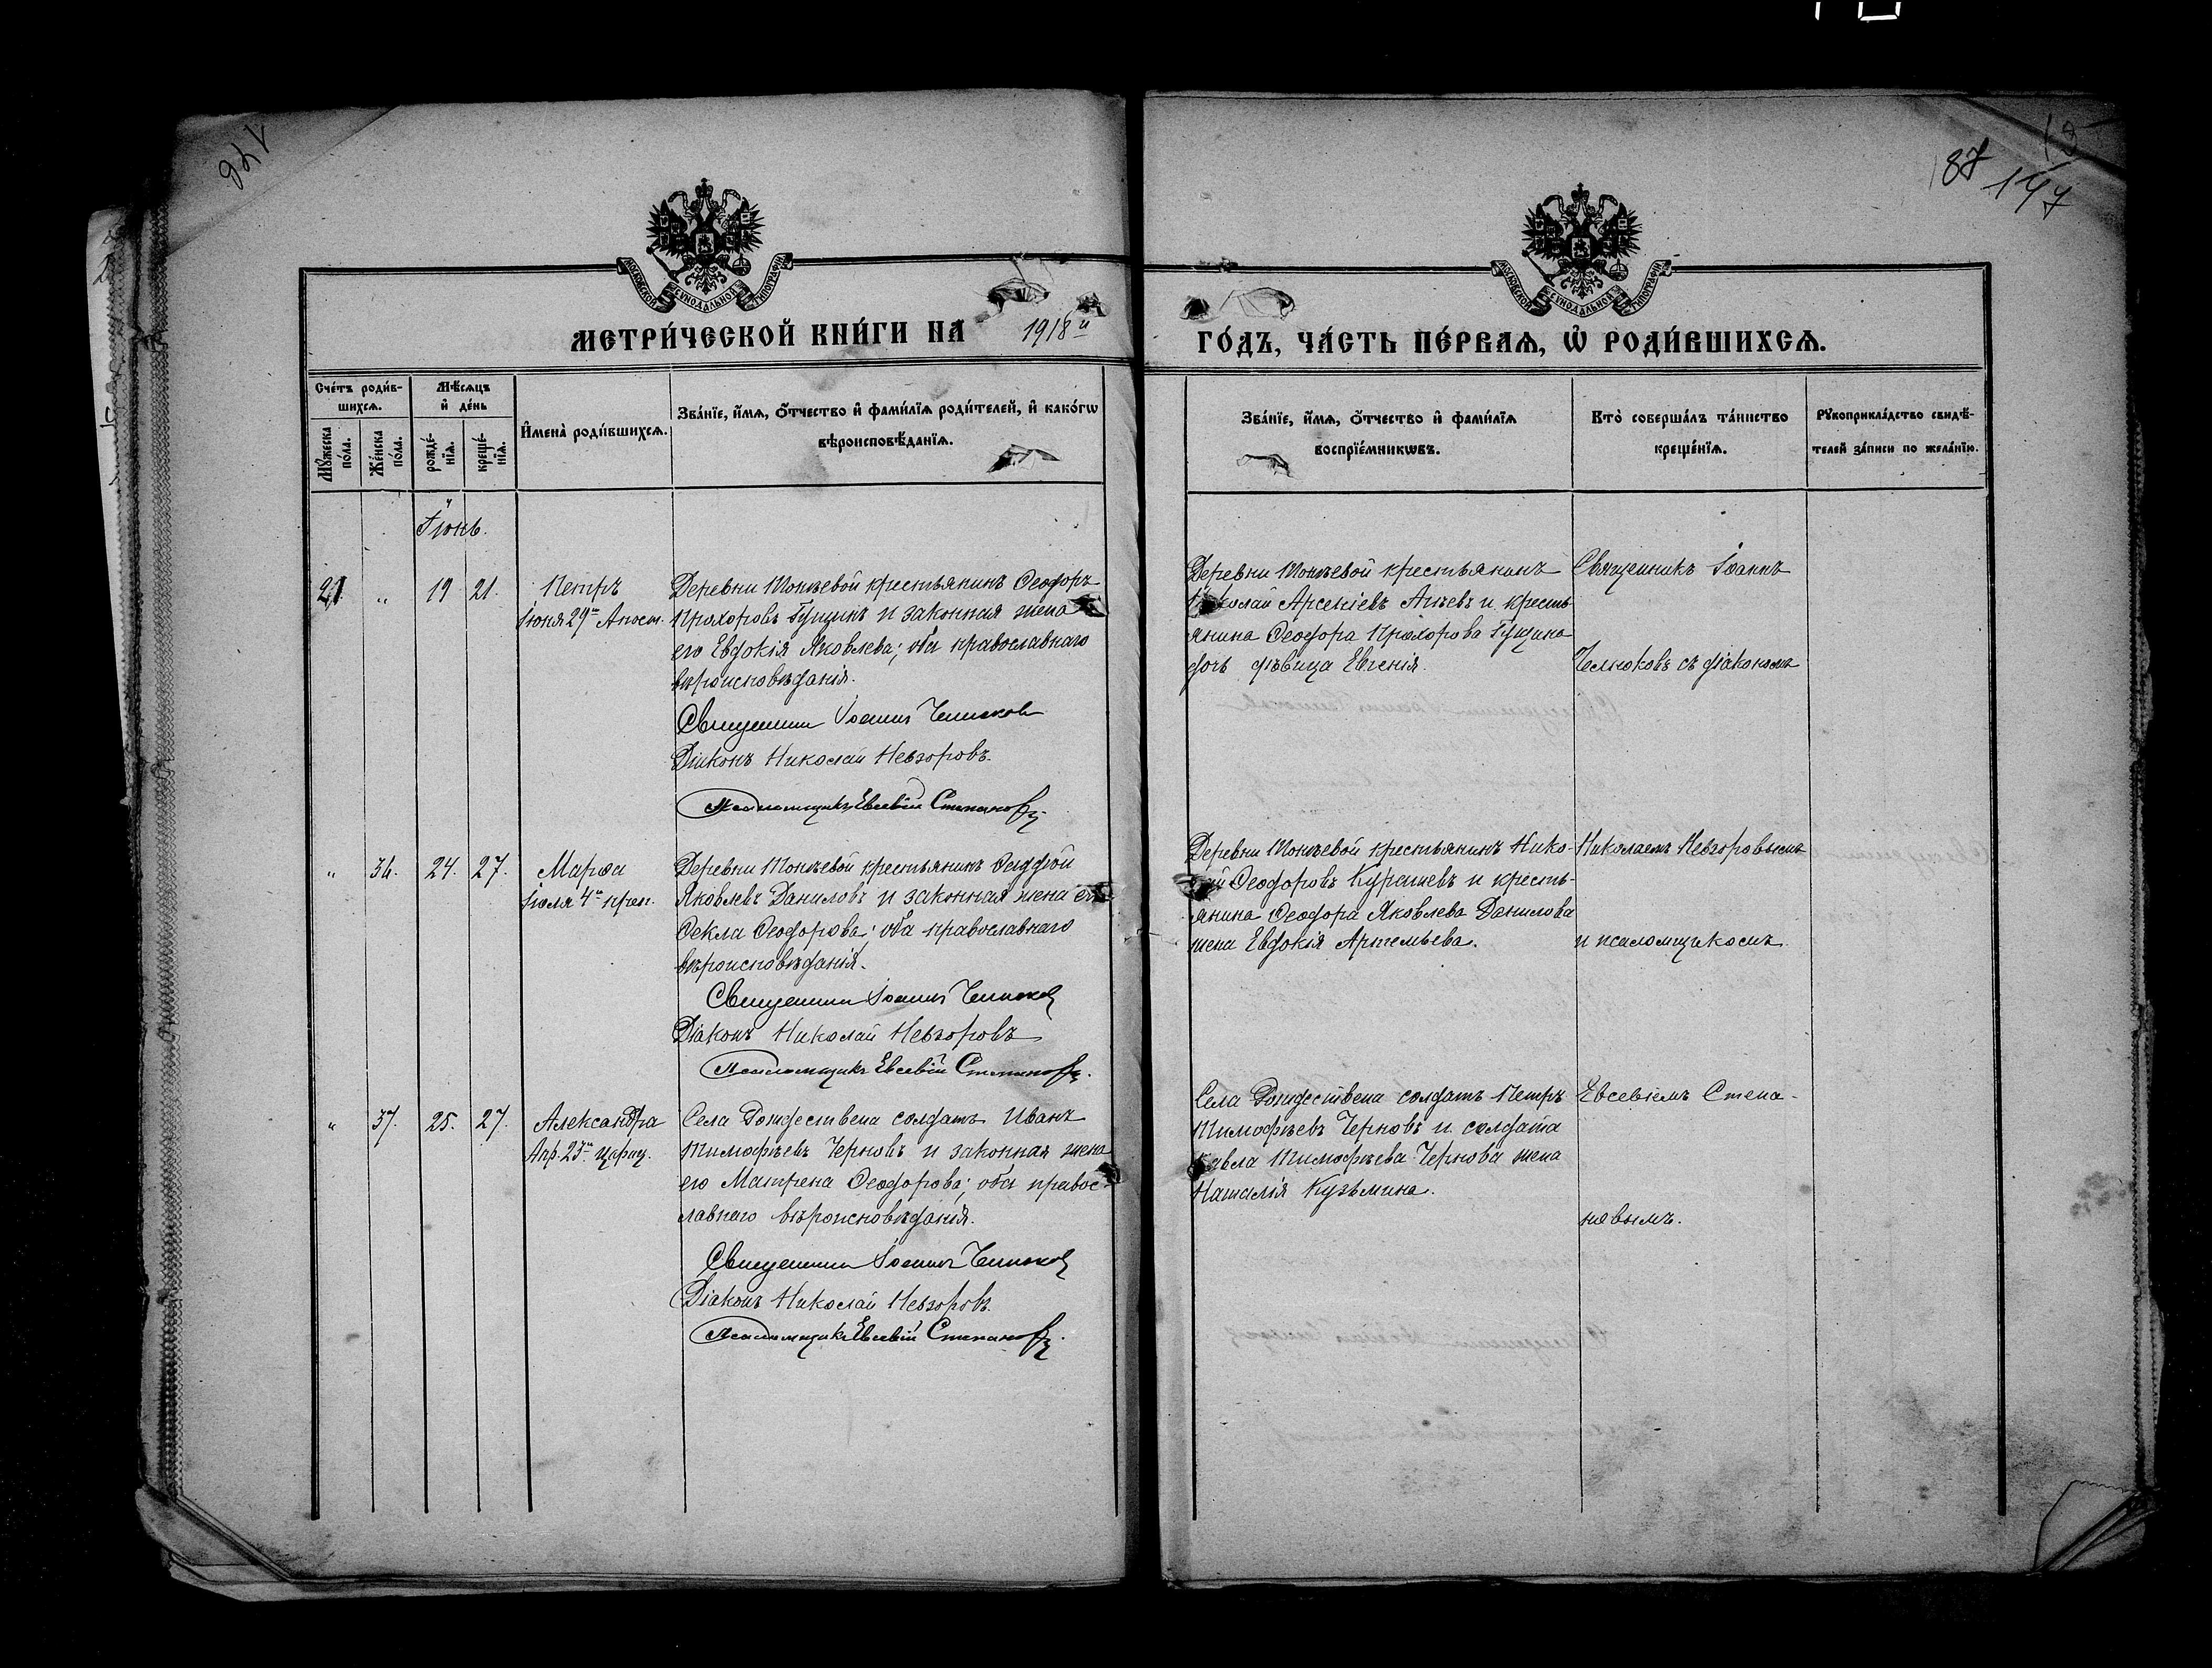 146
187
147
МОСКОВСКОЙ СѴНОДАЛЬНОЙ ТИПОГРАФІИ
МОСКОВСКОЙ СѴНОДАЛЬНОЙ ТИПОГРАФІИ
МЕТРИ́ЧЕСКОЙ КНИ́ГИ НА 1918й ГО́ДЪ, ЧА́СТЬ ПЕ́РВАѦ, Ѡ҆ РОДИ́ВШИХСѦ.
Сче́тъ роди́в-
шихсѧ.
Мꙋ́жеска по́ла.
Же́нска по́ла.
Мѣ́сѧцъ
и҆ де́нь
рожде́-
нїѧ.
креще́-
нїѧ.
И҆мена̀ роди́вшихсѧ.
Зва́нїе, и҆́мѧ, ѻ҆́тчество и҆ фами́лїѧ роди́телей, и҆ како́гѡ
вѣроисповѣ́данїѧ.
Зва́нїе, и҆́мѧ, ѻ҆́тчество и҆ фами́лїѧ
воспрїе́мникѡвъ.
Кто̀ соверша́лъ та́инство
креще́нїѧ.
Рꙋкоприкла́дство свидѣ́-
телей за́писи по жела́нїю.
Іюнь.
21 „ 19 21.
Петръ
Іюня 29го Апост.
Деревни Тонѣевой крестьянинъ Ѳеодоръ
Прохоровъ Гущинъ и законная жена
его Евдокія Яковлева; оба православнаго
вѣроисповѣданія.
Священникъ Іоаннъ Челноков
Діаконъ Николай Невзоровъ.
Псаломщикъ Евсевій Степановъ
Деревни Тонѣевой крестьянинъ
Николай Арсеніевъ Агѣевъ и кресть
янина Ѳеодора Прохорова Гущина
дочь дѣвица Евгенія.
Священникъ Іоаннъ
Челноковъ съ діакономъ
„ 36. 24. 27.
Марѳа
Іюля 4го преп.
Деревни Тонѣевой крестьянинъ Ѳаддей
Яковлевъ Даниловъ и законная жена его
Ѳекла Ѳеодорова; оба православнаго
вѣроисповѣданія.
Священникъ Іоаннъ Челноков
Діаконъ Николай Невзоровъ
Псаломщикъ Евсевій Степановъ.
Деревни Тонѣевой крестьянинъ Нико-
лай Ѳеодоровъ Курешевъ и кресть-
янина Ѳеодора Яковлева Данилова
жена Евдокія Артемьева.
Николаемъ Невзоровымъ
и псаломщикомъ
„ 37. 25. 27.
Александра
Апр. 23го цариц.
Села Рождествена солдатъ Иванъ
Тимофѣевъ Черновъ и законная жена
его Матрена Ѳеодорова; оба правос-
лавнаго вѣроисповѣданія.
Священникъ Іоаннъ Челноков
Діаконъ Николай Невзоровъ.
Псаломщикъ Евсевій Степановъ.
Села Рождествена солдатъ Петръ
Тимофѣевъ Черновъ и солдата
Павла Тимофѣева Чернова жена
Наталія Кузьмина.
Евсевіемъ Степа-
новымъ.